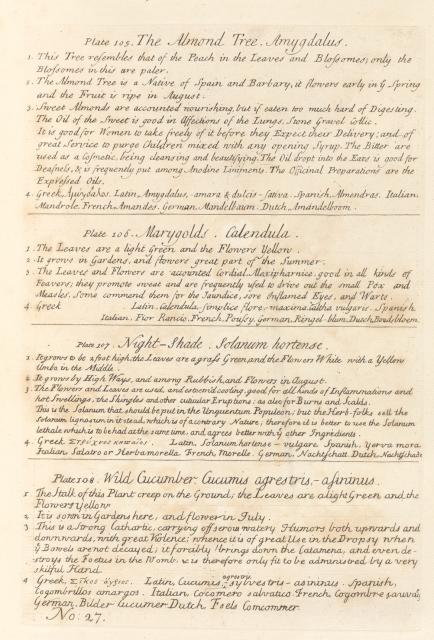 Plate 105. The Almond Tree. Amygdalus.
1. This Tree resembles that of the Peach in the Leaves and Blossomes; only the
Blossomes in this are paler.
2. The Almond Tree is a Native of Spain and Barbary, it flowers early in yͤ Spring
and the Fruit is ripe in August.
3. Sweet Almonds are accounted nourishing, but if eaten too much hard of Digesting.
The Oil of the Sweet is good in Affections of the Lungs, Stone Gravel Collic.
It is good for Women to take freely of it before they Expect their Delivery; and of
great Service to purge Children mixed with any opening Syrup. The Bitter are
used as a Cosmetic, being cleansing and beautifying. The Oil dropt into the Ears is good for
Deafness, & is frequently put among Anodine Liniments. The Officinal Preparations are the
Expressed Oils.
4. Greek, Latin, Amygdalus, amara & dulcis - sativa. Spanish, Almendras. Italian,
Mandrole. French, Amandes. German, Mandelbaum. Dutch, Amandelboom.
Plate 106. Marygolds. Calendula.
1. The Leaves are a light Green and the Flowers Yellow.
2. It grows in Gardens, and flowers great part of the Summer.
3. The Leaves and Flowers are accounted Cordial, Alexipharmice, good in all kinds of
Feavers; they promote sweat and are frequently used to drive out the small Pox and
Measles. Some commend them for the Jaundice, sore Inflamed Eyes, and Warts.
4. Greek Latin, Calendula, simplice flore, maxima, Caltha vulgaris. Spanish,
Italian, Fior Rancio. French, Soussy. German, Ringel-blum. Dutch, Goudsbloem.
Plate 107 Night-Shade. Solanum hortense.
1. It grows to be 2 foot high, the Leaves are a grass Green, and the Flowers White with a Yellow
Umbo in the Middle.
2. It grows by High Ways, and among Rubbish, and Flowers in August.
3. The Flowers and Leaves are used, and esteem'd cooling, good for all kinds of Inflammations and
hot Swellings, the Shingles and other cuticular Eruptions: as also for Burns and Scalds.
This is the Solanum that should be put in the Unguentum Populeon; but the Herb-folks sell the
Solanum lignosum in it stead, which is of a contrary Nature; therefore it is better to use the Solanum
lethale which is to be had at the same time, and agrees better with yͤ other Ingredients.
4. Greek, Στρύχνος κηπαῖος. Latin, Solanum hortense - vulgare. Spanish, Yerva mora.
Italian, Solatro or Herba morella. French, Morelle. German, Nachtschatt. Dutch, Nachtschade
Plate 108. Wild Cucumber. Cucumis agrestris - asininus.
1. The Stalk of this Plant creep on the Ground; the Leaves are a light Green and the
Flowers yellow
2. It is sown in Gardens here, and flower in July.
3. This is a Strong Cathartic, carrying off serous watery Humors both upwards and
downwards, with great Violence: whence it is of great Use in the Dropsy when
yͤ Bowels are not decayed; it forcibly brings down the Catamena, and even de-
stroys the Foetus in the Womb. & is therefore only fit to be administred by a very
skilful Hand.
4. Greek, Σίκυς ἄγριος. Latin, Cucumis agrestris, sylvestris - asininus. Spanish,
Cogombrillos amargos. Italian, Cocomero salvatico. French, Cogombre sauva:
German, Bilder Cucumer. Dutch, Foels Comcommer.
No: 27.